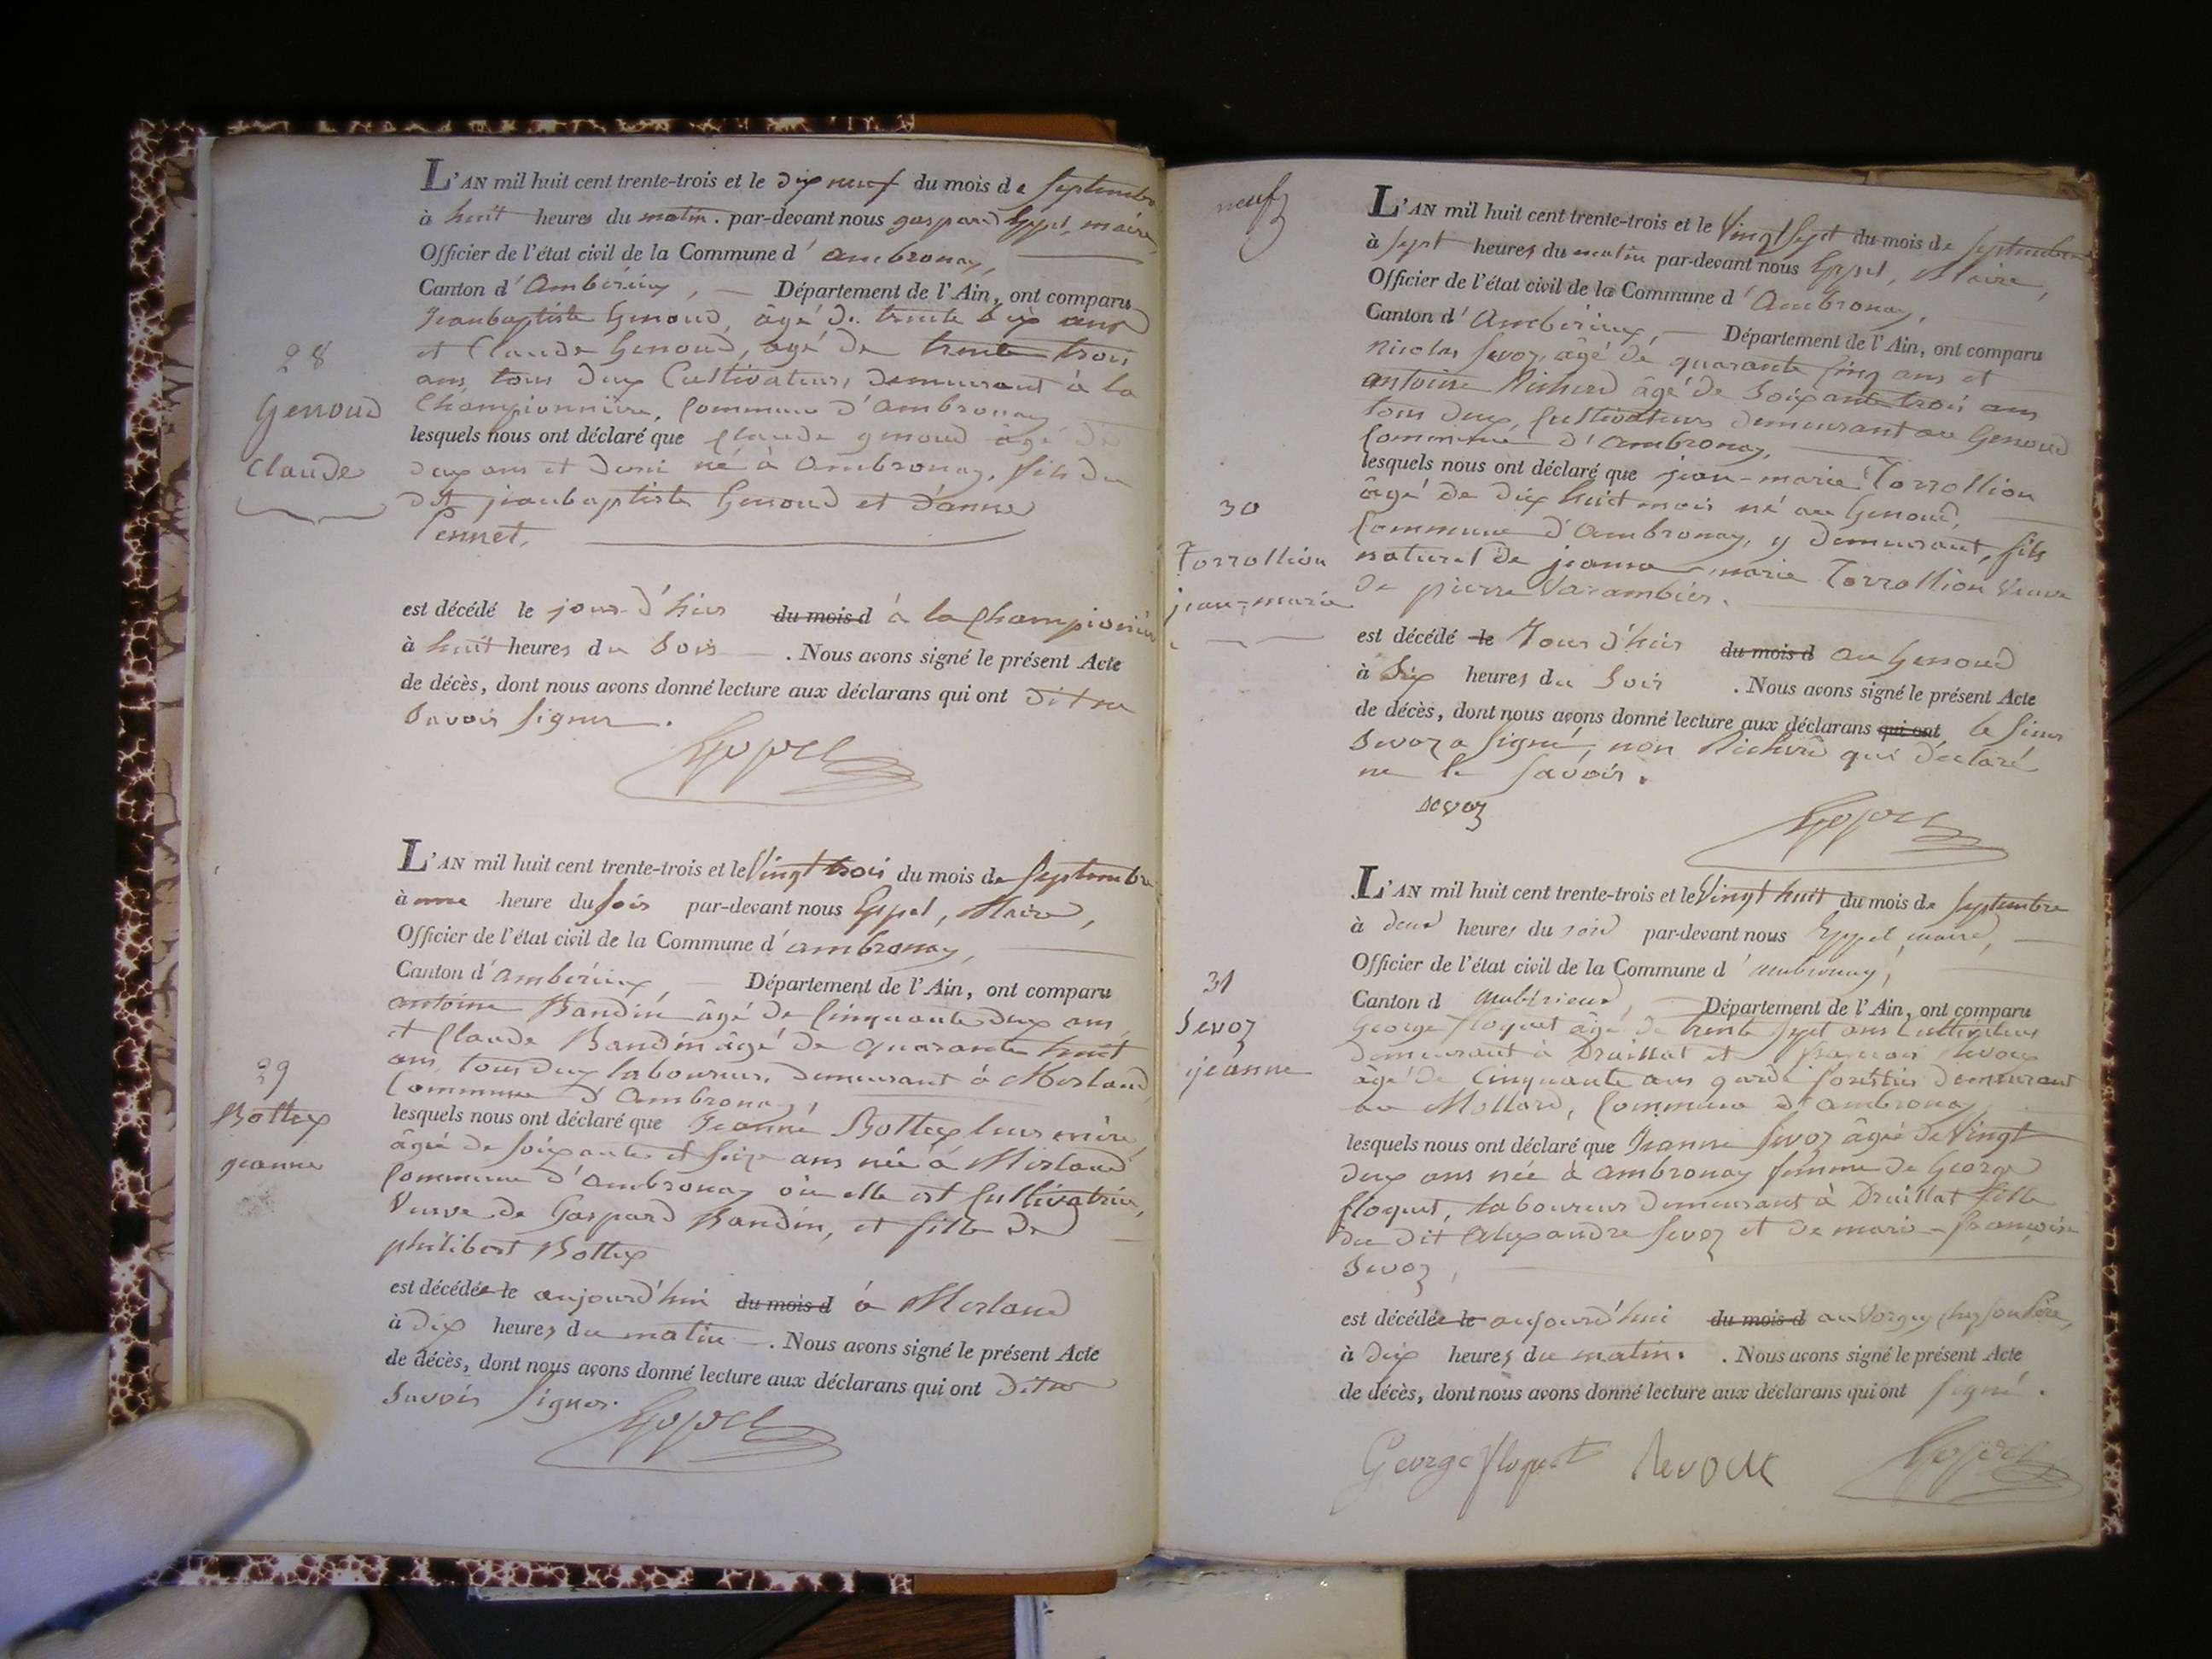 28
Genoud
Claude
L'AN mil huit cent trente-trois et le dix neuf du mois de septembre
à huit heures du matin. par-devant nous gaspard Eppel, maire,
Officier de l'état civil de la Commune d' ambronay,
Canton d' Ambérieux, Département de l'Ain, ont comparu
Jeanbaptiste Genoud, âgé de trente six ans
et Claude Genoud, âgé de trente trois
ans, tous deux Cultivateurs demeurant à la
Championnière, Commune d'ambronay
lesquels nous ont déclaré que Claude genoud âgé de
deux ans et demi né à Ambronay, fils du
dit jeanbaptiste Genoud et d'anne
Pennet,
est décédé le jour d'hier du mois d à la Championnière
à huit heures du Soir . Nous avons signé le présent Acte
de décès, dont nous avons donné lecture aux déclarans qui ont dit ne
Savoir signer.
Eppel
29
Bottex
jeanne
L'AN mil huit cent trente-trois et le Vingt trois du mois de Septembre
à une heure du soir par-devant nous Eppel, Maire,
Officier de l'état civil de la Commune d' ambronay,
Canton d' ambérieux, Département de l'Ain, ont comparu
antoine Bandin âgé de Cinquante deux ans,
et Claude Bandin âgé de quarante huit
ans, tous deux laboureurs, demeurant à Merland,
Commune d'Ambronay,
lesquels nous ont déclaré que Jeanne Bottex leur mère,
âgée de soixante et seize ans née à Merland
Commune d'Ambronay où elle est Cultivatrice,
Veuve de Gaspard Bandin, et fille de
philibert Bottex
est décédée le aujourd'hui du mois d à Merland
à dix heures du matin . Nous avons signé le présent Acte
de décès, dont nous avons donné lecture aux déclarans qui ont dit ne
Savoir signer.
Eppel
neuf
30
Torrollion
jean-marie
L'AN mil huit cent trente-trois et le Vingt Sept du mois de Septembre
à sept heures du matin par-devant nous Eppel, Maire,
Officier de l'état civil de la Commune d' Ambronay,
Canton d' Ambérieux, Département de l'Ain, ont comparu
Nicolas Sevoz, âgé de quarante Cinq ans et
antoine Richerd âgé de Soixante trois ans
tous deux, Cultivateurs demeurant au Genoud
Commune d'Ambronay,
lesquels nous ont déclaré que jean-marie Torrollion
âgé de dix huit mois né au Genoud,
Commune d'Ambronay, y demeurant, fils
naturel de jeanne-marie Torrollion Veuve
de pierre Varambier.
est décédé le Jour d'hier du mois d au Genoud
à Six heures du Soir . Nous avons signé le présent Acte
de décès, dont nous avons donné lecture aux déclarans qui ont le Sieur
Sevoz a signé, non Richerd qui déclaré
ne le savoir.
sevoz
Eppel
31
Sevoz
jeanne
L'AN mil huit cent trente-trois et le Vingt huit du mois de Septembre
à deux heures du soir par-devant nous Eppel, maire,
Officier de l'état civil de la Commune d' ambronay,
Canton d ambérieux, Département de l'Ain, ont comparu
George floquet âgé de trente Sept ans Cultivateur
demeurant à Druillat et françois
âgé de Cinquante ans garde forestier demeurant
au Mollard, Commune d'ambronay
lesquels nous ont déclaré que Jeanne Sevoz âgée de Vingt
deux ans née à ambronay femme de George
floquet, laboureur demeurant à Druillat fille
du dit Alexandre Sevoz et de marie-françoise
Sevoz,
est décédée le aujourd'hui du mois d au Vorgey chez son Père,
à dix heures du matin. . Nous avons signé le présent Acte
de décès, dont nous avons donné lecture aux déclarans qui ont signé.
George floquet
Eppel